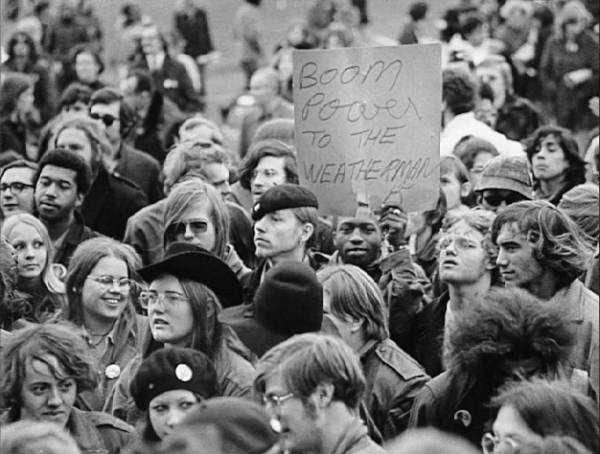 BOOM
POWER
TO THE
WEATHERMAN